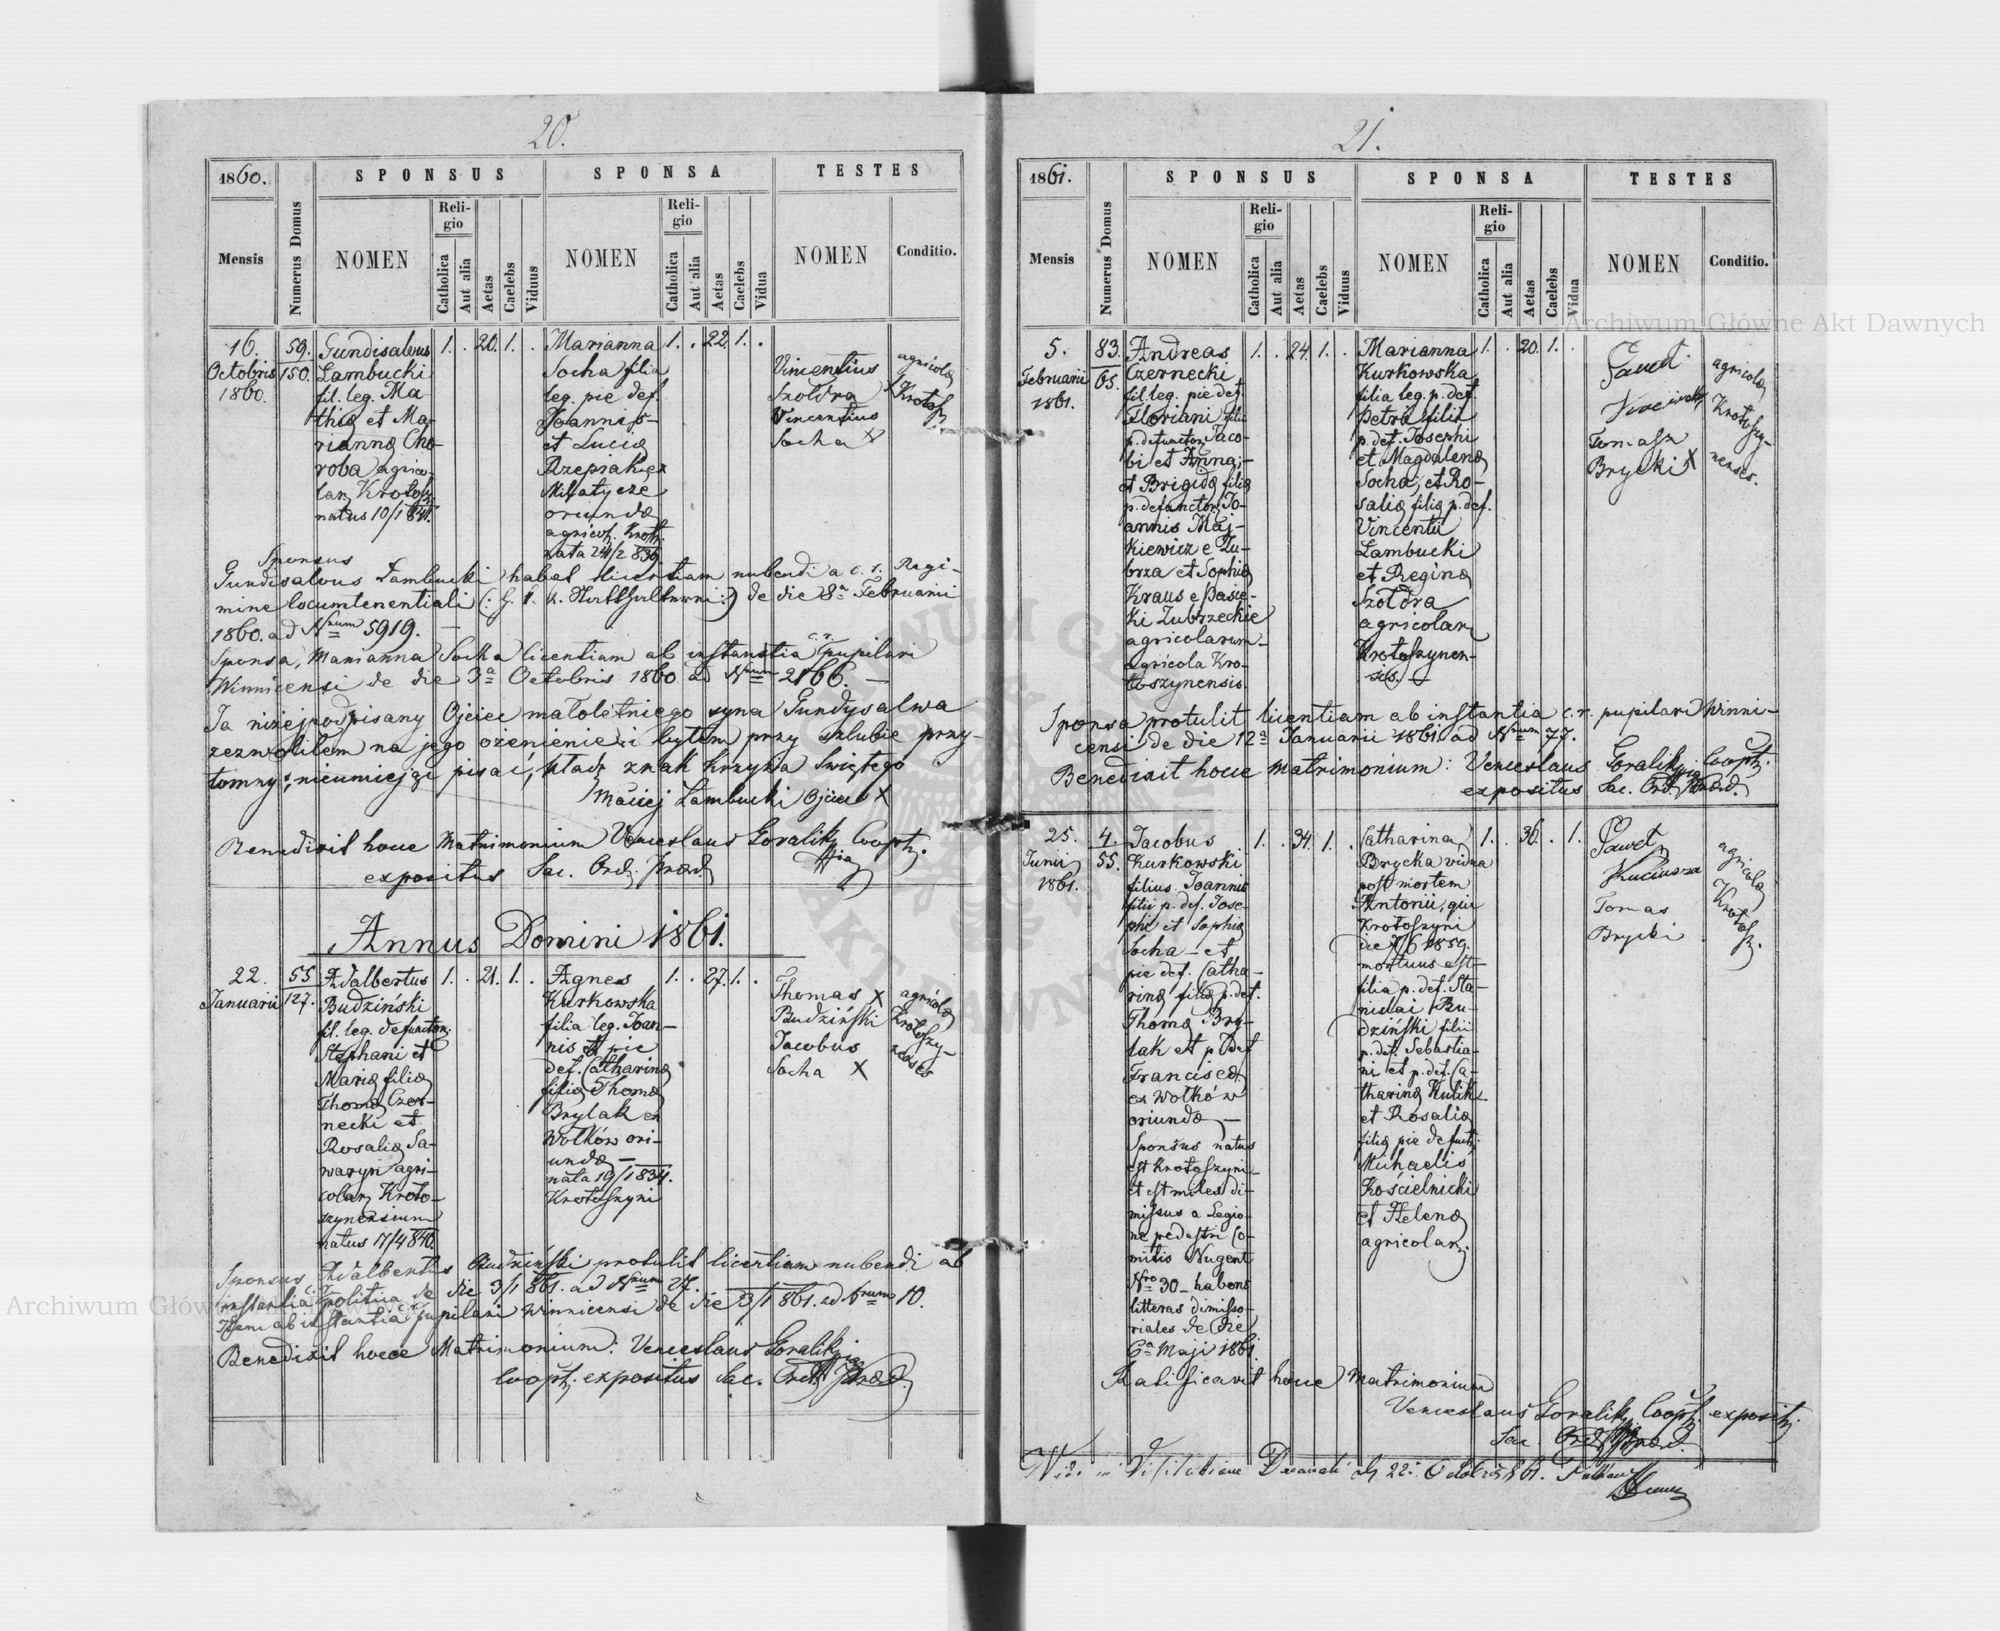 20.
1860.
SPONSUS
SPONSA
TESTES
Mensis
Numerus Domus
NOMEN
Religio
Catholica
Aut alia
Aetas
Caelebs
Viduus
NOMEN
Religio
Catholica
Aut alia
Aetas
Caelebs
Vidua
NOMEN
Conditio.
16.
Octobris
1860.
59.
150.
Gundisalvus
Lambucki
fil. leg. Ma
thiæ et Ma-
riannæ Cho-
roba agrico-
lar. Krotosz.
natus 10/1 841.
1. . 20. 1. .
Marianna
Socha filia
leg. pie def.
Joannis
et Luciæ
Rzepiak ex
Mikatycze
oriundæ
agricol. Krot.
nata 24/2 839.
1. . 22. 1. .
Vincentius
Szoldra X
Vincentius
Socha X
agricolæ
Krotosz.
Sponsus
Gundisalvus Lambucki habet licentiam nubendi a c. r. Regi-
mine locumtenentiali (: G. k. k. Statthalterei :) de die 8a Februarii
1860. ad Nrum 5919. —
Sponsa, Marianna Socha licentiam ab instantia c. r. pupilari
Winnicensi de die 3a Octobris 1860 ad Nrum 2166. —
Ja niżejpodpisany Ojciec małoletniego syna Gundysalwa
zezwoliłem na jego ożenienie i byłem przy szlubie przy-
tomny; nieumiejąc pisać, kładę znak krzyża Świętego
Maciej Lambucki Ojciec X
Benedixit hocce Matrimonium Venceslaus Goralik Coop.
expositus Sac. Ord. Præd.
Annus Domini 1861.
22.
Januarii
55
127.
Adalbertus
Budziński
fil. leg. defunctor.
Stephani et
Mariæ filiæ
Thomæ Czer-
necki et
Rosaliæ Sa-
waryn agri-
colar. Kroto-
szynensium
natus 17/4 840.
1. . 21. 1. .
Agnes
Kurkowska
filia leg. Joan-
nis et pie
def. Catharinæ
filiæ Thomæ
Brylak ex
Wołków ori-
undæ —
nata 19/1 834.
Krotoszyni
1. . 27. 1. .
Thomas X
Budziński
Jacobus
Socha X
agricolæ
Krotoszy-
nenses
Sponsus Adalbertus Budziński protulit licentiam nubendi ab
instantia c. r. politica de die 3/1 861. ad Nrum 27.
Item ab instantia c. r. pupilari Winnicensi de die 3/1 861. ad Nrum 10.
Benedixit hocce Matrimonium: Venceslaus Goralik
Coop. expositus Sac. Ord. Præd.
21.
1861.
SPONSUS
SPONSA
TESTES
Mensis
Numerus Domus
NOMEN
Religio
Catholica
Aut alia
Aetas
Caelebs
Viduus
NOMEN
Religio
Catholica
Aut alia
Aetas
Caelebs
Vidua
NOMEN
Conditio.
5.
Februarii
1861.
83.
65.
Andreas
Czernecki
fil. leg. pie def.
Floriani filii
p. defunctor. Jaco-
bi et Anna;-
et Brigidæ filiæ
p. defunctor. Jo-
annis Maj-
kiewicz e Zu-
brza et Sophiæ
Kraus e Pasie-
ki Zubrzeckie
agricolarum-
agricola Kro-
toszynensis.
1. . 24. 1. .
Marianna
Kurkowska
filia leg. p. def.
Petri filii
p. def. Josephi
et Magdalenæ
Socha; et Ro-
saliæ filiæ p. def.
Vincentii
Lambucki
et Reginæ
Szoldra
agricolar.
Krotoszynen-
sis.
1. . 20. 1. .
Paweł
Tomasz
Brycki X
agricolæ
Krotoszy-
nenses.
Sponsa protulit licentiam ab instantia c. r. pupilari Winni-
censi de die 12a Januarii 1861. ad Nrum 77.
Benedixit hocce Matrimonium: Venceslaus Goralik Coop.
expositus Sac. Ord. Præd.
25.
Junii
1861.
4.
55.
Jacobus
Kurkowski
filius Joannis
filii p. def. Jose-
phi et Sophiæ
Socha — et
pie def. Catha-
rinæ filiæ p. def.
Thomæ Bry-
lak et p. def.
Franciscæ
ex Wołków
oriundæ —
Sponsus natus
est Krotoszyni
et est miles di-
missus a Legio-
ne pedestri Co-
mitis Nugent
Nro 30 - habens
litteras dimisso-
riales de die
6a Maji 1861.
1. . 34. 1. .
Catharina
Brycka vidua
post mortem
Antonii, qui
Krotoszyni
die 7/6 1859.
mortuus est-
filia p. def. Sta-
nislai Bu-
dziński filii
p. def. Sebastia-
ni et p. def. Ca-
tharinæ Kulik
et Rosaliæ
filiæ pie defunct.
Michaelis
Kościelnicki
et Helenæ
agricolar.
1. . 36. . 1.
Paweł
Kuciusza
Tomas
Brycki
agricolæ
Krotosz.
Ratificavit hocce Matrimonium
Venceslaus Goralik Coop. exposit.
Sac. Ord. Præd.
Vidi in Visitatione Decanali d. 22. Octobris 861.
Archiwum Główne Akt Dawnych
Archiwum Główne Akt Dawnych
ARCHIWUM GŁÓWNE AKT DAWNYCH